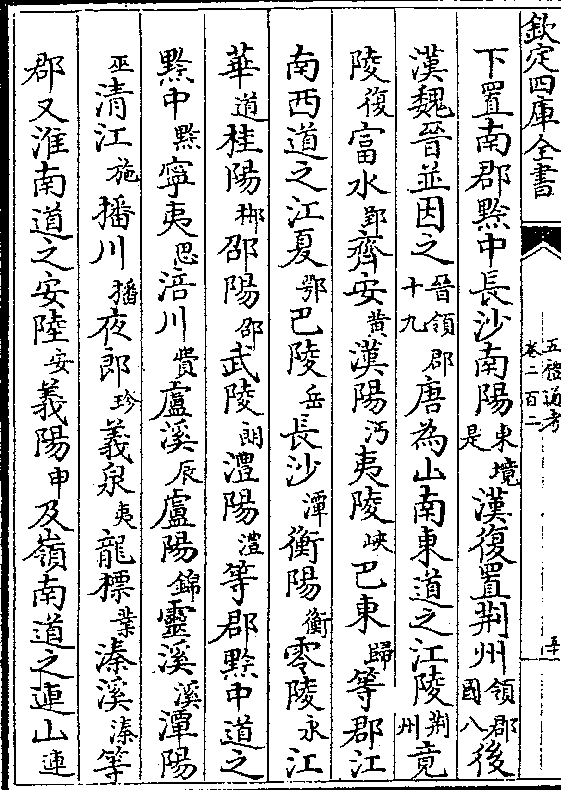 欽定四庫全書
五禮通考
卷二百二
五十
下置南郡黔中長沙南陽東境是漢復置荆州領郡國八後
漢魏晉並因之晉領郡十九唐為山南東道之江陵荆州竟
陵復富水郢齊安黃漢陽沔夷陵峽巴東歸等郡江
南西道之江夏鄂巴陵岳長沙潭衡陽衡零陵永江
華道桂陽郴邵陽邵武陵朗澧陽澧等郡黔中道之
黔中黔寧夷思涪川費盧溪辰盧陽錦靈溪溪潭陽
巫清江施播川播夜郎珍義泉夷龍標業溱溪溱等
郡又淮南道之安陸安義陽申及嶺南道之連山連